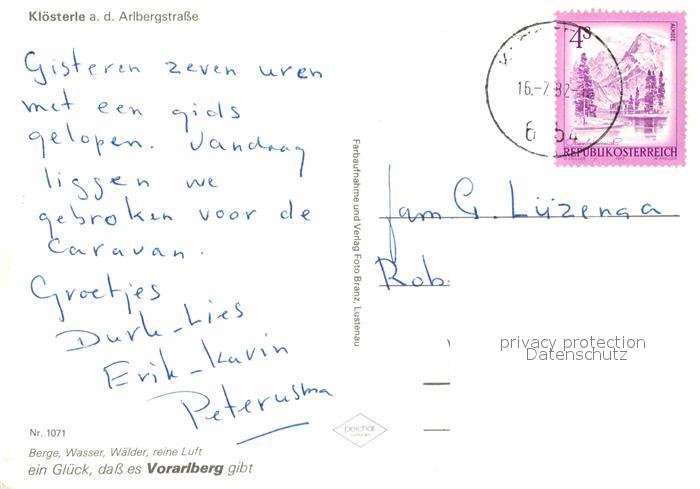 Klösterle a. d. Arlbergstraße
Gisteren zeven uren
met een gids
gelopen. Vandaag
liggen we
gebroken voor de
caravan.
Groetjes
Durk-Lies
Erik-Karin
Petersma
Nr. 1071
Berge, Wasser, Wälder, reine Luft
ein Glück, daß es Vorarlberg gibt
Farbaufnahme und Verlag Foto Branz, Lustenau
16.-7.82-
4S
ALMSEE
REPUBLIK ÖSTERREICH
Fam G. Lüzenga
Rob.
privacy protection
Datenschutz